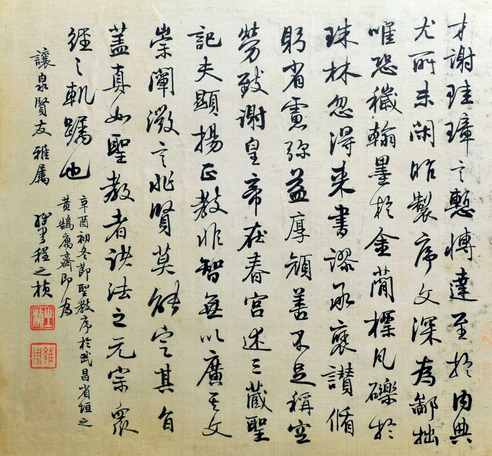 才謝珪璋言慙博達至於內典
尤所未閑昨製序文深為鄙拙
唯恐穢翰墨於金簡標瓦礫於
珠林忽得來書謬承褒讚循
躬省慮彌益厚顏善不足稱空
勞致謝皇帝在春宮述三藏聖
記夫顯揚正教非智無以廣其文
崇闡微言非賢莫能定其旨
蓋真如聖教者諸法之玄宗眾
經之軌躅也
辛酉初冬節聖教序於武昌省垣之
黃鵠廣齋即為
讓泉賢友雅屬
程之楨
維周